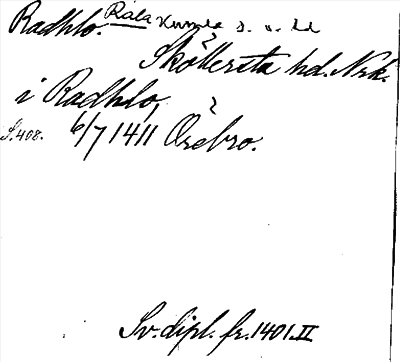 Radhlo. Råla Kumla s. o. hd
? Sköllersta hd. Nrk.
i Radhlo, ?
S. 408. 6/7 1411 Örebro.
Sv. dipl. fr. 1401. II